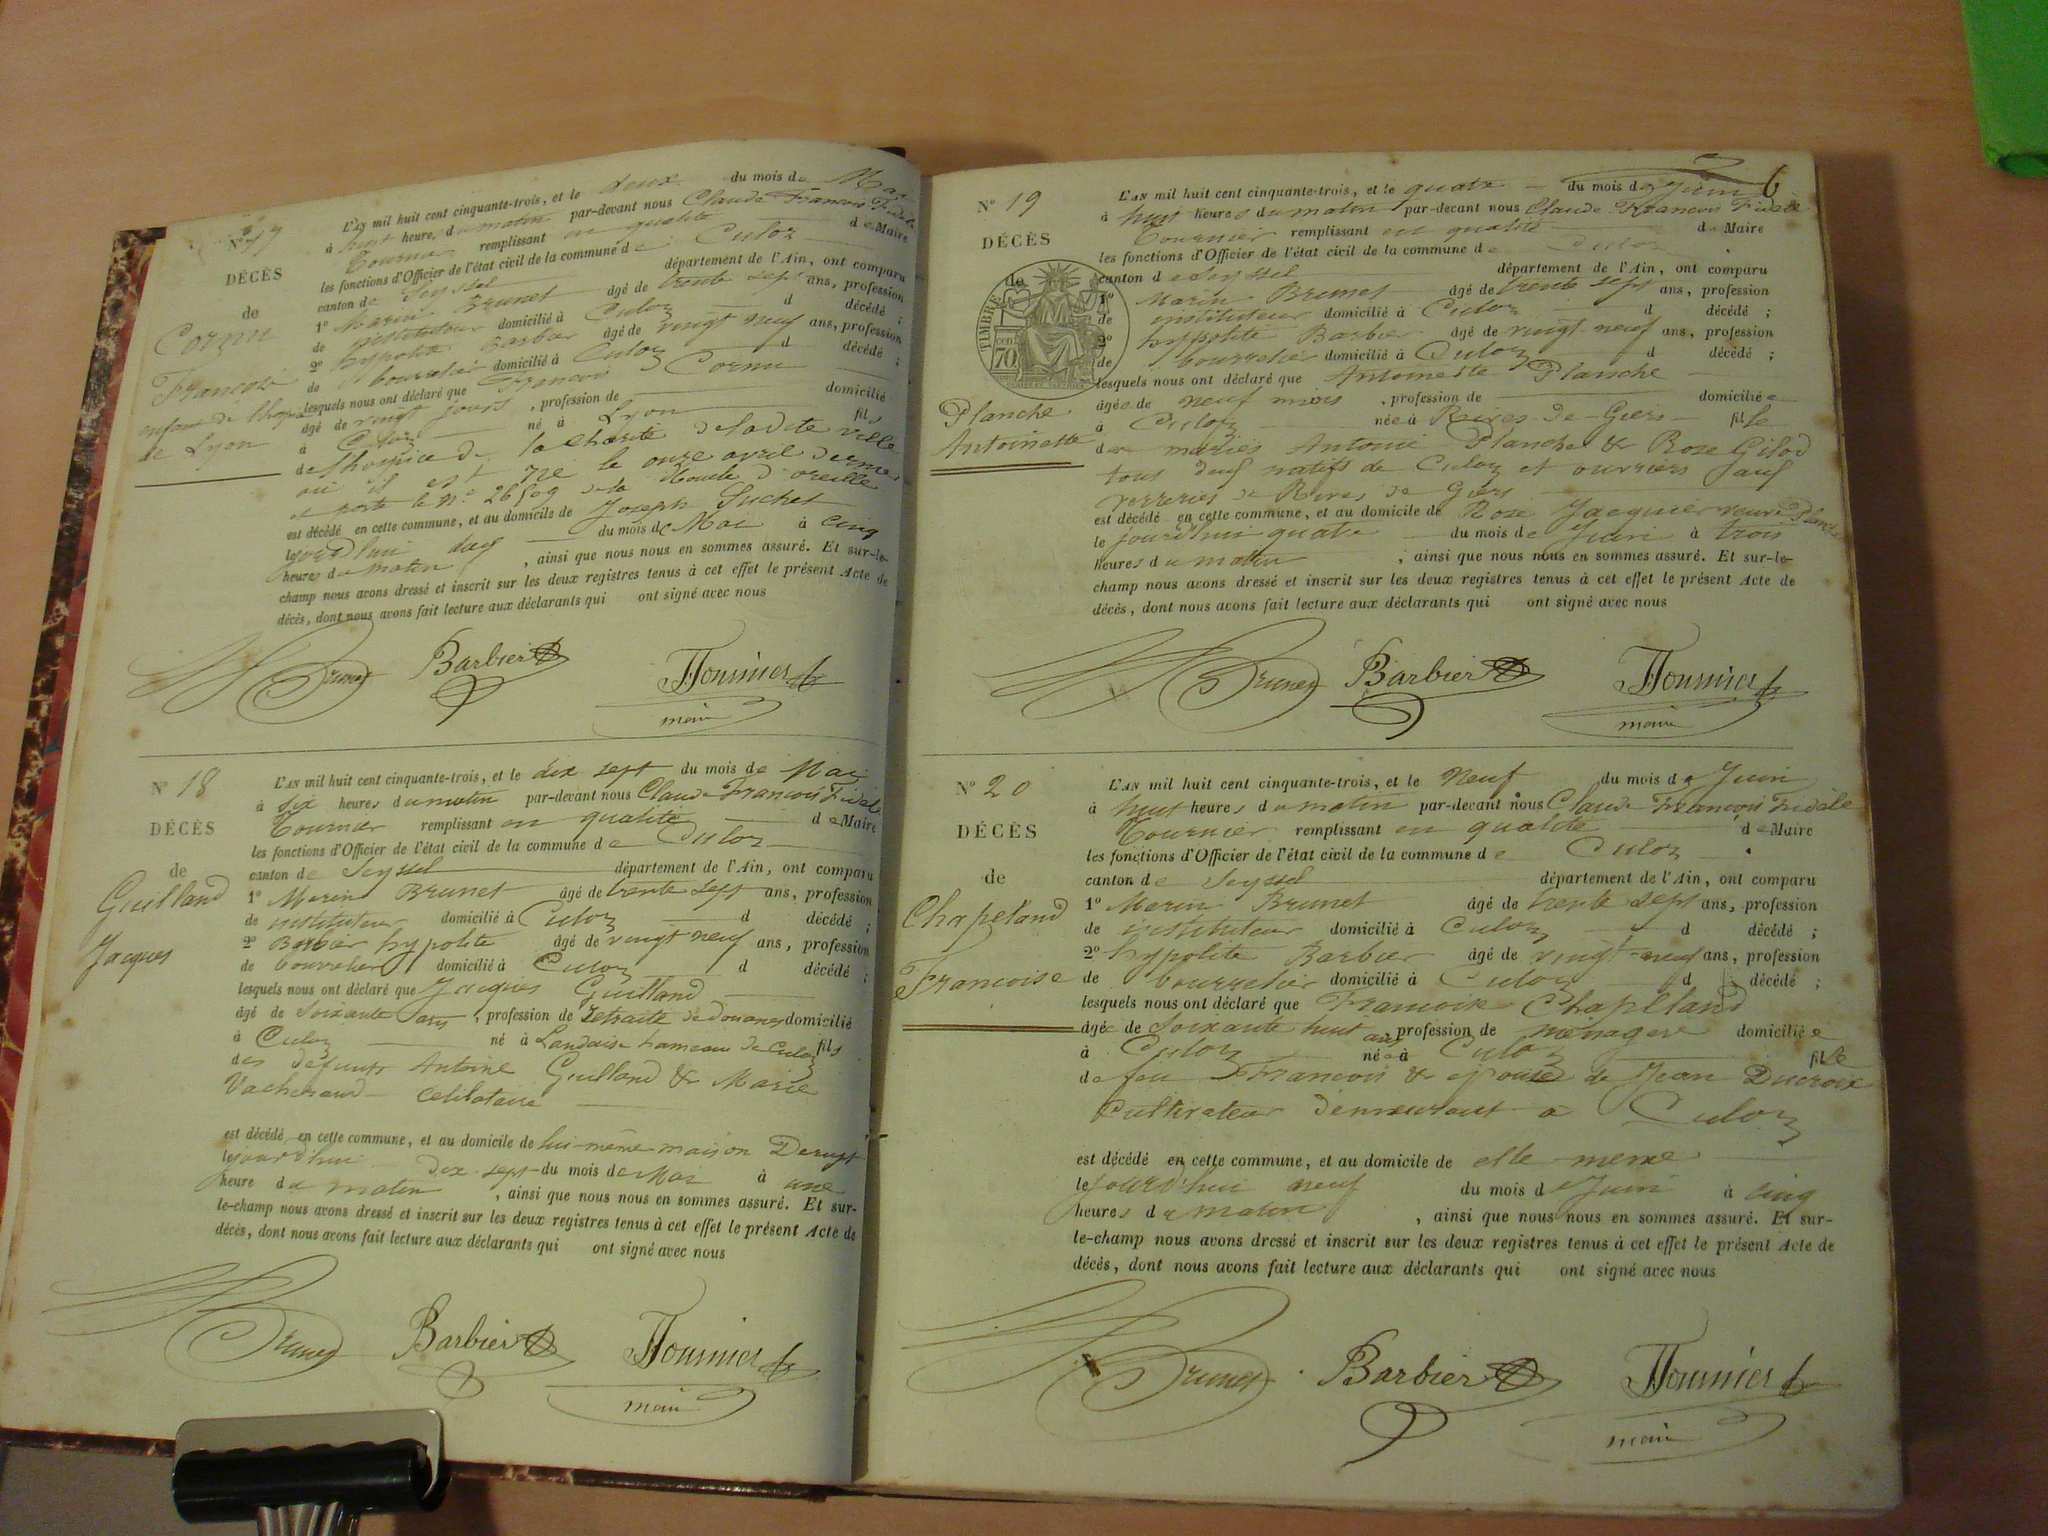 N° 17
DÉCÈS
de
Cornu
François
enfant de l'hospice
de Lyon
L'AN mil huit cent cinquante-trois, et le deux du mois de Mai
à huit heures du matin par-devant nous Claude François Fidèle
Tournier remplissant en qualité de Maire
les fonctions d'Officier de l'état civil de la commune de Culoz
canton de Seyssel département de l'Ain, ont comparu
1° Marin Brunet âgé de trente sept ans, profession
de instituteur domicilié à Culoz d décédé ;
2° hypolite Barbier âgé de vingt neuf ans, profession
de bourrelier domicilié à Culoz d décédé ;
lesquels nous ont déclaré que François Cornu
âgé de vingt jours, profession de domicilié
à Culoz né à Lyon fils
de l'hospice de la charité de ladite ville
où il est né le onze avril dernier
et porte le n° 26509 de la boucle d'oreille
est décédé en cette commune, et au domicile de Joseph Suchet
le jourd'hui deux du mois de Mai à cinq
heures du matin, ainsi que nous nous en sommes assuré. Et sur-le-
champ nous avons dressé et inscrit sur les deux registres tenus à cet effet le présent Acte de
décès, dont nous avons fait lecture aux déclarants qui ont signé avec nous
Brunet Barbier Tournier
maire
N° 18
DÉCÈS
de
Guilland
Jacques
L'AN mil huit cent cinquante-trois, et le dix sept du mois de Mai
à six heures du matin par-devant nous Claude François Fidèle
Tournier remplissant en qualité de Maire
les fonctions d'Officier de l'état civil de la commune de Culoz
canton de Seyssel département de l'Ain, ont comparu
1° Marin Brunet âgé de trente sept ans, profession
de instituteur domicilié à Culoz d décédé ;
2° Barbier hypolite âgé de vingt neuf ans, profession
de bourrelier domicilié à Culoz d décédé ;
lesquels nous ont déclaré que Jacques Guilland
âgé de Soixante ans, profession de retraité de douanes domicilié
à Culoz né à Landaise hameau de Culoz fils
des défunts Antoine Guilland & Marie
Vacherand célibataire
est décédé en cette commune, et au domicile de lui-même maison
le jourd'hui dix-sept du mois de Mai à une
heure du matin, ainsi que nous nous en sommes assuré. Et sur-
le-champ nous avons dressé et inscrit sur les deux registres tenus à cet effet le présent Acte de
décès, dont nous avons fait lecture aux déclarants qui ont signé avec nous
Brunet Barbier Tournier
maire
6
N° 19
DÉCÈS
de
TIMBRE
70
Planche
Antoinette
L'AN mil huit cent cinquante-trois, et le quatre du mois de Juin
à huit heures du matin par-devant nous Claude François Fidèle
Tournier remplissant en qualité de Maire
les fonctions d'Officier de l'état civil de la commune de Culoz
canton de Seyssel département de l'Ain, ont comparu
1° Marin Brunet âgé de trente sept ans, profession
de instituteur domicilié à Culoz d décédé ;
2° hypolite Barbier âgé de vingt neuf ans, profession
de bourrelier domicilié à Culoz d décédé ;
lesquels nous ont déclaré que Antoinette Planche
âgée de neuf mois, profession de domiciliée
à Culoz née à Rives-de-Giers fille
des mariés Antoine Planche & Rose Gilod
tous deux natifs de Culoz et ouvriers aux
verreries de Rives de Giers
est décédé en cette commune, et au domicile de Rose Jacquier veuve Planche
le jourd'hui quatre du mois de Juin à trois
heures du matin ; ainsi que nous nous en sommes assuré. Et sur-le-
champ nous avons dressé et inscrit sur les deux registres tenus à cet effet le présent Acte de
décès, dont nous avons fait lecture aux déclarants qui ont signé avec nous
Brunet Barbier Tournier
maire
N° 20
DÉCÈS
de
Chapeland
Francoise
L'AN mil huit cent cinquante-trois, et le Neuf du mois de Juin
à huit heures du matin par-devant nous Claude François Fidèle
Tournier remplissant en qualité de Maire
les fonctions d'Officier de l'état civil de la commune de Culoz
canton de Seyssel département de l'Ain, ont comparu
1° Marin Brunet âgé de trente sept ans, profession
de instituteur domicilié à Culoz d décédé ;
2° hypolite Barbier âgé de vingt-neuf ans, profession
de bourrelier domicilié à Culoz d décédé ;
lesquels nous ont déclaré que Francoise Chapeland
âgée de Soixante huit ans, profession de ménagère domiciliée
à Culoz née à Culoz fille
de feu François & épouse de Jean Ducroix
Cultivateur demeurant à Culoz
est décédé en cette commune, et au domicile de elle même
le jourd'hui neuf du mois de Juin à cinq
heures du matin, ainsi que nous nous en sommes assuré. Et sur-
le-champ nous avons dressé et inscrit sur les deux registres tenus à cet effet le présent Acte de
décès, dont nous avons fait lecture aux déclarants qui ont signé avec nous
Brunet Barbier Tournier
maire